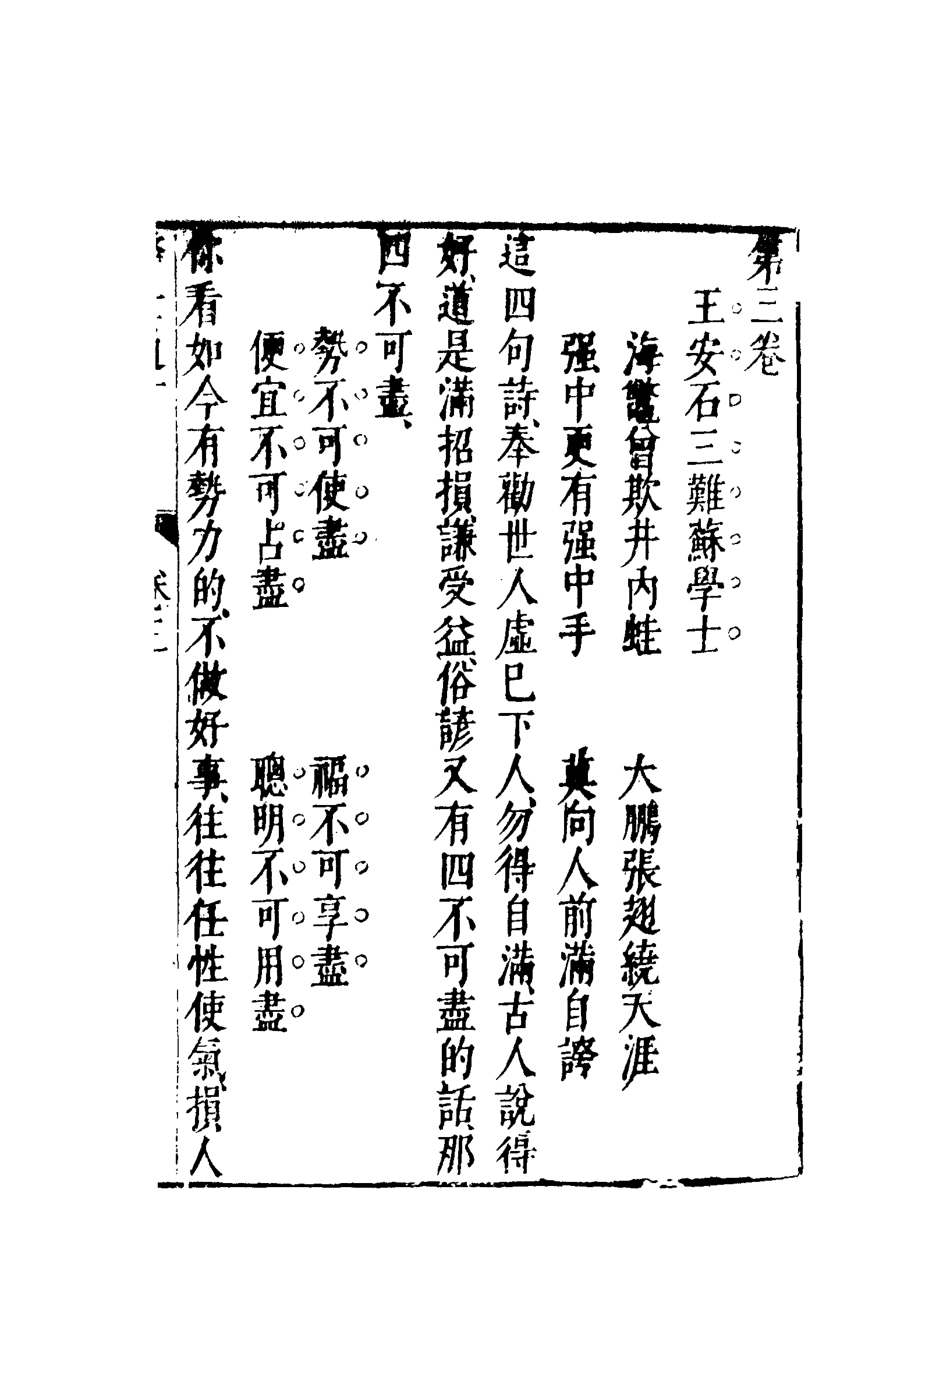 第三卷
王安石三難蘇學士
海鱉曾欺井內蛙　大鵬張翅繞天涯
强中更有强中手　莫向人前滿自誇
這四句詩、奉勸世人虛己下人、勿得自滿、古人說得
好、道是滿招損、謙受益、俗諺又有四不可盡的話、那
四不可盡、
勢不可使盡　福不可享盡
便宜不可占盡　聰明不可用盡
你看如今有勢力的、不做好事、往往任性使氣、損人
卷三